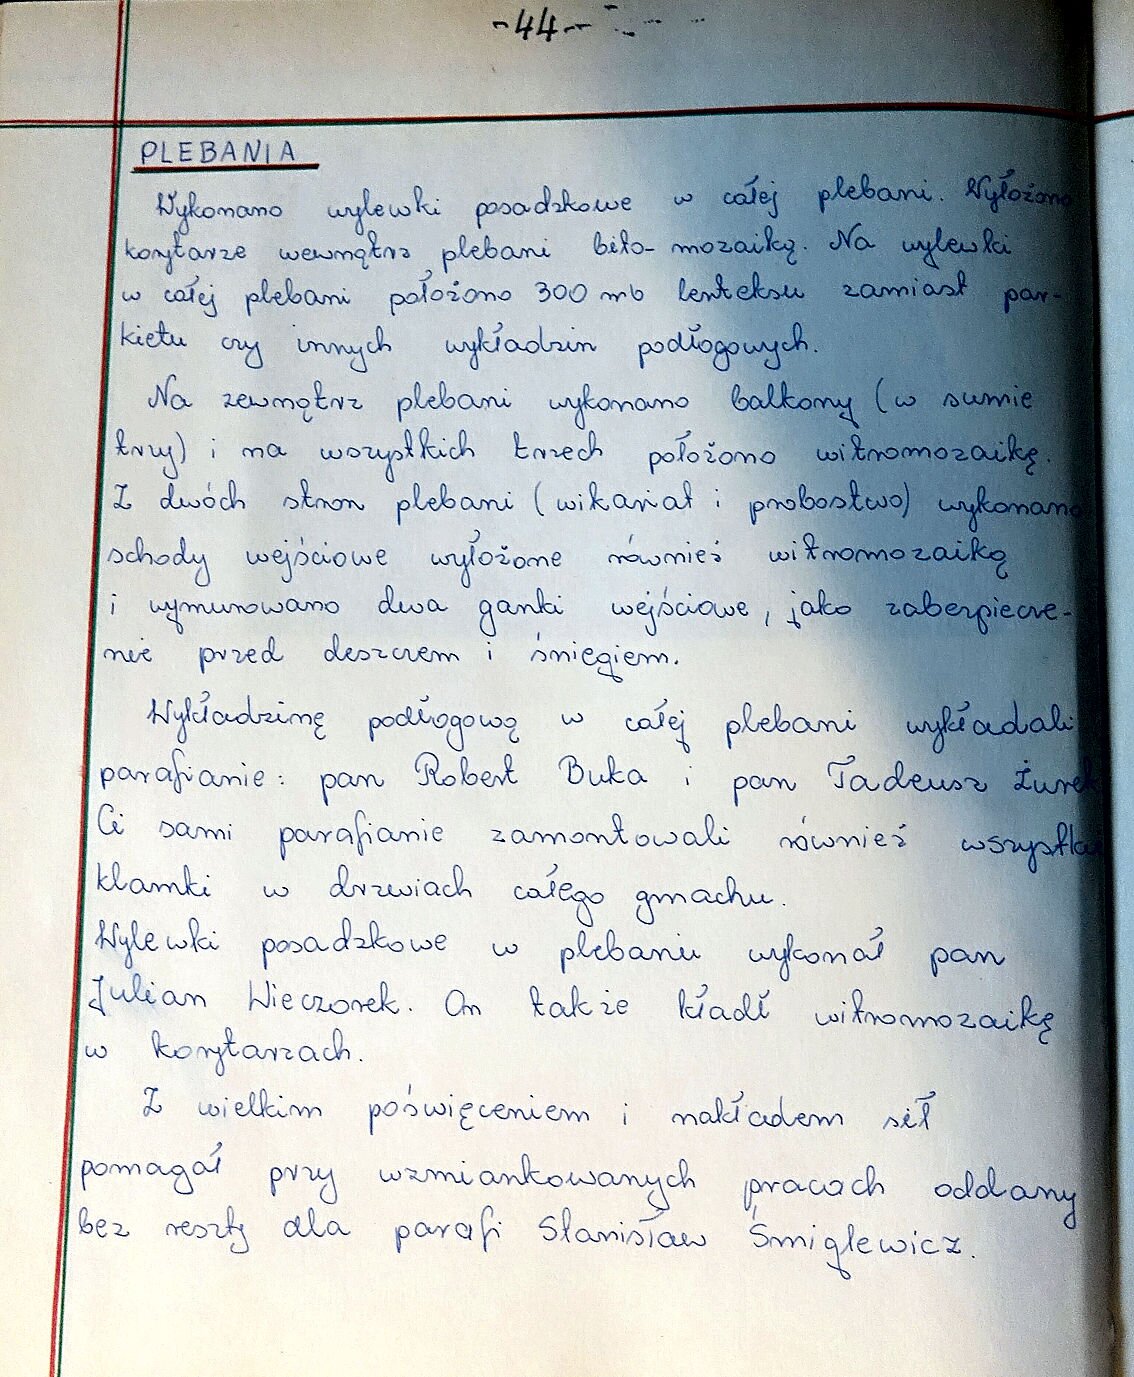 -44-
PLEBANIA
Wykonano wylewki posadzkowe w całej plebani. Wyłożono
korytarze wewnątrz plebani biło-mozaiką. Na wylewki
w całej plebani położono 300 mb lenteksu zamiast par-
kietu czy innych wykładzin podłogowych.
Na zewnątrz plebani wykonano balkony (w sumie
trzy) i na wszystkich trzech położono witromozaikę.
Z dwóch stron plebani (wikariat i probostwo) wykonano
schody wejściowe wyłożone również witromozaiką
i wymurowano dwa ganki wejściowe, jako zabezpiecze-
nie przed deszczem i śniegiem.
Wykładzinę podłogową w całej plebani wykładali
parafianie: pan Robert Buka i pan Tadeusz Żurek
Ci sami parafianie zamontowali również wszystkie
klamki w drzwiach całego gmachu.
Wylewki posadzkowe w plebanii wykonał pan
Julian Wieczorek. On także kładł witromozaikę
w korytarzach.
Z wielkim poświęceniem i nakładem sił
pomagał przy wzmiankowanych pracach oddany
bez reszty dla parafi Stanisław Śmiglewicz.